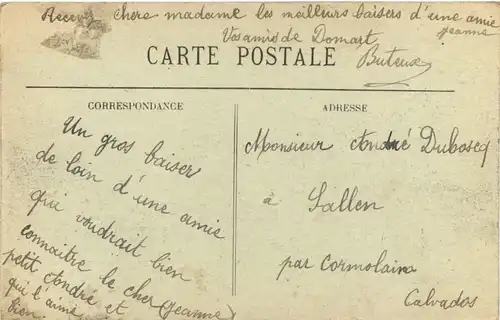 Recevez chere madame les meilleurs baisers d'une amie
Jeanne
Vos amis de Domart
Buteux
CARTE POSTALE
CORRESPONDANCE
Un gros baiser
de loin d'une amie
qui voudrait bien
connaitre le cher (Jeanne)
petit André et
qui l'aime
bien.
ADRESSE
Monsieur André Duboscq
à Sallen
par Cormolain
Calvados